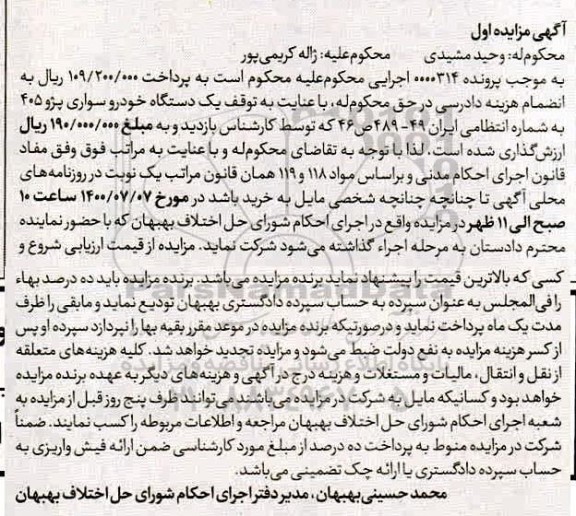 آگهی مزایده اول
محکوم‌له: وحید مشیدی محکوم‌علیه: ژاله کریمی‌پور
به موجب پرونده ۰۰۰۰۳۱۴ اجرایی محکوم‌علیه محکوم است به پرداخت ۱۰۹/۲۰۰/۰۰۰ ریال به
انضمام هزینه دادرسی در حق محکوم‌له، با عنایت به توقف یک دستگاه خودرو سواری پژو ۴۰۵
به شماره انتظامی ایران ۴۹-۴۸۹ص۴۶ که توسط کارشناس بازدید و به مبلغ ۱۹۰/۰۰۰/۰۰۰ ریال
ارزش‌گذاری شده است. لذا با توجه به تقاضای محکوم‌له و با عنایت به مراتب فوق وفق مفاد
قانون اجرای احکام مدنی و براساس مواد ۱۱۸ و ۱۱۹ همان قانون مراتب یک نوبت در روزنامه‌های
محلی آگهی تا چنانچه چنانچه شخصی مایل به خرید باشد در مورخ ۱۴۰۰/۰۷/۰۷ ساعت ۱۰
صبح الی ۱۱ ظهر در مزایده واقع در اجرای احکام شورای حل اختلاف بهبهان که با حضور نماینده
محترم دادستان به مرحله اجراء گذاشته می‌شود شرکت نماید. مزایده از قیمت ارزیابی شروع و
کسی که بالاترین قیمت را پیشنهاد نماید برنده مزایده می‌باشد. برنده مزایده باید ده درصد بهاء
را فی‌المجلس به عنوان سپرده به حساب سپرده دادگستری بهبهان تودیع نماید و مابقی را ظرف
مدت یک ماه پرداخت نماید و درصورتیکه برنده مزایده در موعد مقرر بقیه بها را نپردازد سپرده او پس
از کسر هزینه مزایده به نفع دولت ضبط می‌شود و مزایده تجدید خواهد شد. کلیه هزینه‌های متعلقه
از نقل و انتقال، مالیات و مستغلات و هزینه درج در آگهی و هزینه‌های دیگر به عهده برنده مزایده
خواهد بود و کسانیکه مایل به شرکت در مزایده می‌باشند می‌توانند ظرف پنج روز قبل از مزایده به
شعبه اجرای احکام شورای حل اختلاف بهبهان مراجعه و اطلاعات مربوطه را کسب نمایند. ضمناً
شرکت در مزایده منوط به پرداخت ده درصد از مبلغ مورد کارشناسی ضمن ارائه فیش واریزی به
حساب سپرده دادگستری یا ارائه چک تضمینی می‌باشد.
محمد حسینی بهبهان، مدیر دفتر اجرای احکام شورای حل اختلاف بهبهان